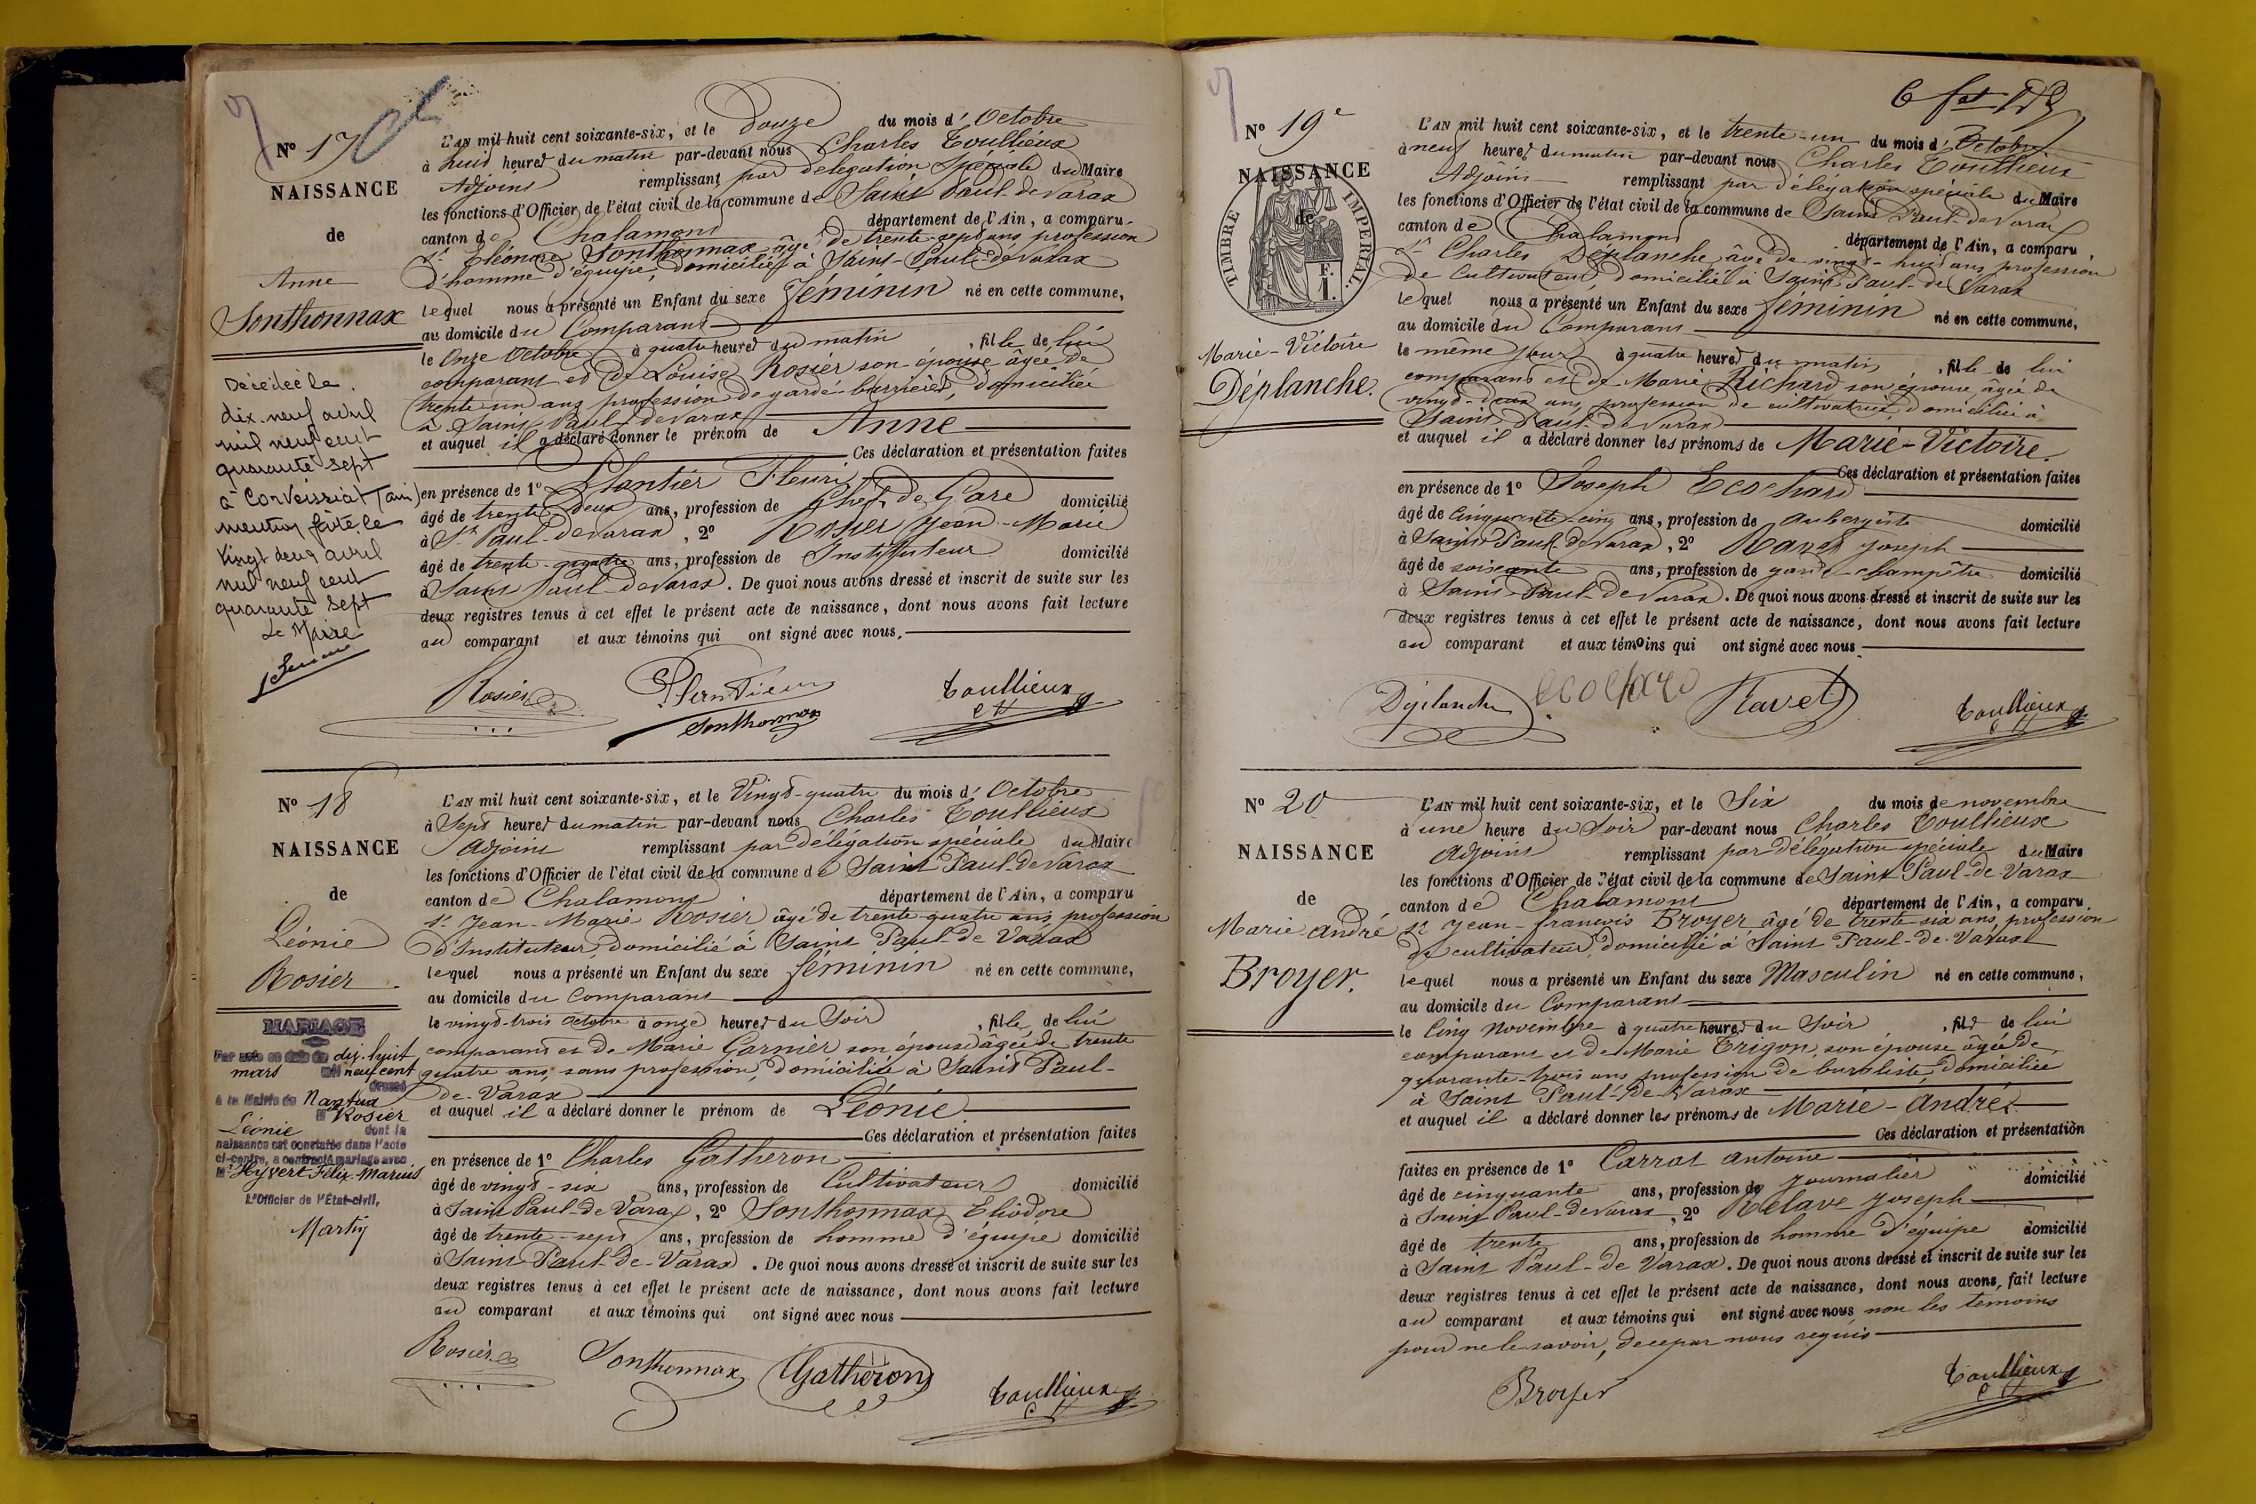 No 17
NAISSANCE
de
Anne
Sonthonnax
Décédée le
dix-neuf avril
mil neuf cent
quarante sept
à Corveissiat (ain)
mention faite le
vingt deux avril
mil neuf cent
quarante sept
Le Maire
L'AN mil huit cent soixante-six, et le Douze du mois d'Octobre
à huit heures du matin par-devant nous Charles Toullieux
Adjoint remplissant par délégation Spéciale du Maire
les fonctions d'Officier de l'état civil de la commune de Saint Paul-de Varax
canton de Chalamont département de l'Ain, a comparu
Sr Eléonore Sonthonnax âgé de trente-sept ans profession
d'homme d'équipe, domicilié à Saint-Paul-de Varax
lequel nous a présenté un Enfant du sexe féminin né en cette commune,
au domicile du Comparant
le Onze Octobre à quatre heures du matin, fille de lui
comparant et de Louise Rosier son épouse âgée de
trente un ans profession de garde-barrières, domiciliée
à Saint Paul-de Varax
et auquel il a déclaré donner le prénom de Anne
Ces déclaration et présentation faites
en présence de 1o Plantier Fleuri
âgé de trente deux ans, profession de Chef de Gare domicilié
à St Paul-de Varax, 2o Rosier Jean-Marie
âgé de trente-quatre ans, profession de Instituteur domicilié
à Saint Paul-de Varax. De quoi nous avons dressé et inscrit de suite sur les
deux registres tenus à cet effet le présent acte de naissance, dont nous avons fait lecture
au comparant et aux témoins qui ont signé avec nous.
Rosier Plantier Toullieux
Sonthonnax
No 18
NAISSANCE
de
Léonie
Rosier
MARIAGE
Par acte en date du dix-huit
mars mil neuf cent
dressé
à la Mairie de Nantua
M Rosier
Léonie dont la
naissance est constatée dans l'acte
ci-contre, a contracté mariage avec
M. Hyvert Félix-Marius
L'Officier de l'État-civil,
Martin
L'AN mil huit cent soixante-six, et le Vingt-quatre du mois d'Octobre
à Sept heures du matin par-devant nous Charles Toullieux
Adjoint remplissant par délégation spéciale du Maire
les fonctions d'Officier de l'état civil de la commune de Saint Paul-de Varax
canton de Chalamont département de l'Ain, a comparu
Sr Jean-Marie Rosier âgé de trente-quatre ans profession
d'Instituteur, domicilié à Saint Paul-de Varax
lequel nous a présenté un Enfant du sexe féminin né en cette commune,
au domicile du Comparant
le vingt-trois Octobre à onze heures du Soir, fille de lui
comparant et de Marie Garnier son épouse âgée de trente
quatre ans, sans profession, domiciliée à Saint Paul-
de-Varax
et auquel il a déclaré donner le prénom de Léonie
Ces déclaration et présentation faites
en présence de 1o Charles Gatheron
âgé de vingt-six ans, profession de Cultivateur domicilié
à Saint Paul-de Varax, 2o Sonthonnax Eliodore
âgé de trente-sept ans, profession de homme d'équipe domicilié
à Saint Paul-de-Varax. De quoi nous avons dressé et inscrit de suite sur les
deux registres tenus à cet effet le présent acte de naissance, dont nous avons fait lecture
au comparant et aux témoins qui ont signé avec nous
Rosier Sonthonnax Gatheron Toullieux
No 19e
NAISSANCE
de
TIMBRE IMPÉRIAL.
F.
1.
Marie-Victoire
Déplanche.
L'AN mil huit cent soixante-six, et le trente-un du mois d'Octobre
à neuf heures du matin par-devant nous Charles Toullieux
Adjoint remplissant par délégation spéciale du Maire
les fonctions d'Officier de l'état civil de la commune de Saint Paul-de Varax
canton de Chalamont département de l'Ain, a comparu
Sr Charles Déplanche âgé de vingt-huit ans profession
de Cultivateur, domicilié à Saint Paul-de Varax
lequel nous a présenté un Enfant du sexe féminin né en cette commune,
au domicile du Comparant
le même jour à quatre heures du matin, fille de lui
comparant et de Marie Richard son épouse, âgée de
vingt-deux ans, profession de cultivatrice, domiciliée à
Saint Paul-de Varax
et auquel il a déclaré donner les prénoms de Marie-Victoire.
Ces déclaration et présentation faites
en présence de 1o Joseph Ecochard
âgé de Cinquante-cinq ans, profession de Aubergiste domicilié
à Saint Paul-de Varax, 2o Ravet Joseph
âgé de soixante ans, profession de garde-champêtre domicilié
à Saint Paul-de Varax. De quoi nous avons dressé et inscrit de suite sur les
deux registres tenus à cet effet le présent acte de naissance, dont nous avons fait lecture
au comparant et aux témoins qui ont signé avec nous
Déplanche Ecochard Ravet Toullieux
No 20
NAISSANCE
de
Marie-André
Broyer.
L'AN mil huit cent soixante-six, et le Six du mois de novembre
à une heure du Soir par-devant nous Charles Toullieux
Adjoint remplissant par délégation spéciale du Maire
les fonctions d'Officier de l'état civil de la commune de Saint Paul-de-Varax
canton de Chalamont département de l'Ain, a comparu
Sr Jean-francois Broyer âgé de trente-six ans, profession
de cultivateur, domicilié à Saint Paul-de-Varax
lequel nous a présenté un Enfant du sexe Masculin né en cette commune,
au domicile du Comparant
le Cinq Novembre à quatre heures du Soir, fils de lui
comparant et de Marie Trigon, son épouse âgée de
quarante-trois ans profession de buraliste, domiciliée
à Saint Paul-de Varax
et auquel il a déclaré donner les prénoms de Marie-André
Ces déclaration et présentation
faites en présence de 1o Carrat Antoine
âgé de cinquante ans, profession de Journalier domicilié
à Saint Paul-de Varax, 2o Relave Joseph
âgé de trente ans, profession de homme d'équipe domicilié
à Saint Paul-de Varax. De quoi nous avons dressé et inscrit de suite sur les
deux registres tenus à cet effet le présent acte de naissance, dont nous avons fait lecture
au comparant et aux témoins qui ont signé avec nous non les témoins
pour ne le savoir, de ce par nous requis
Broyer Toullieux